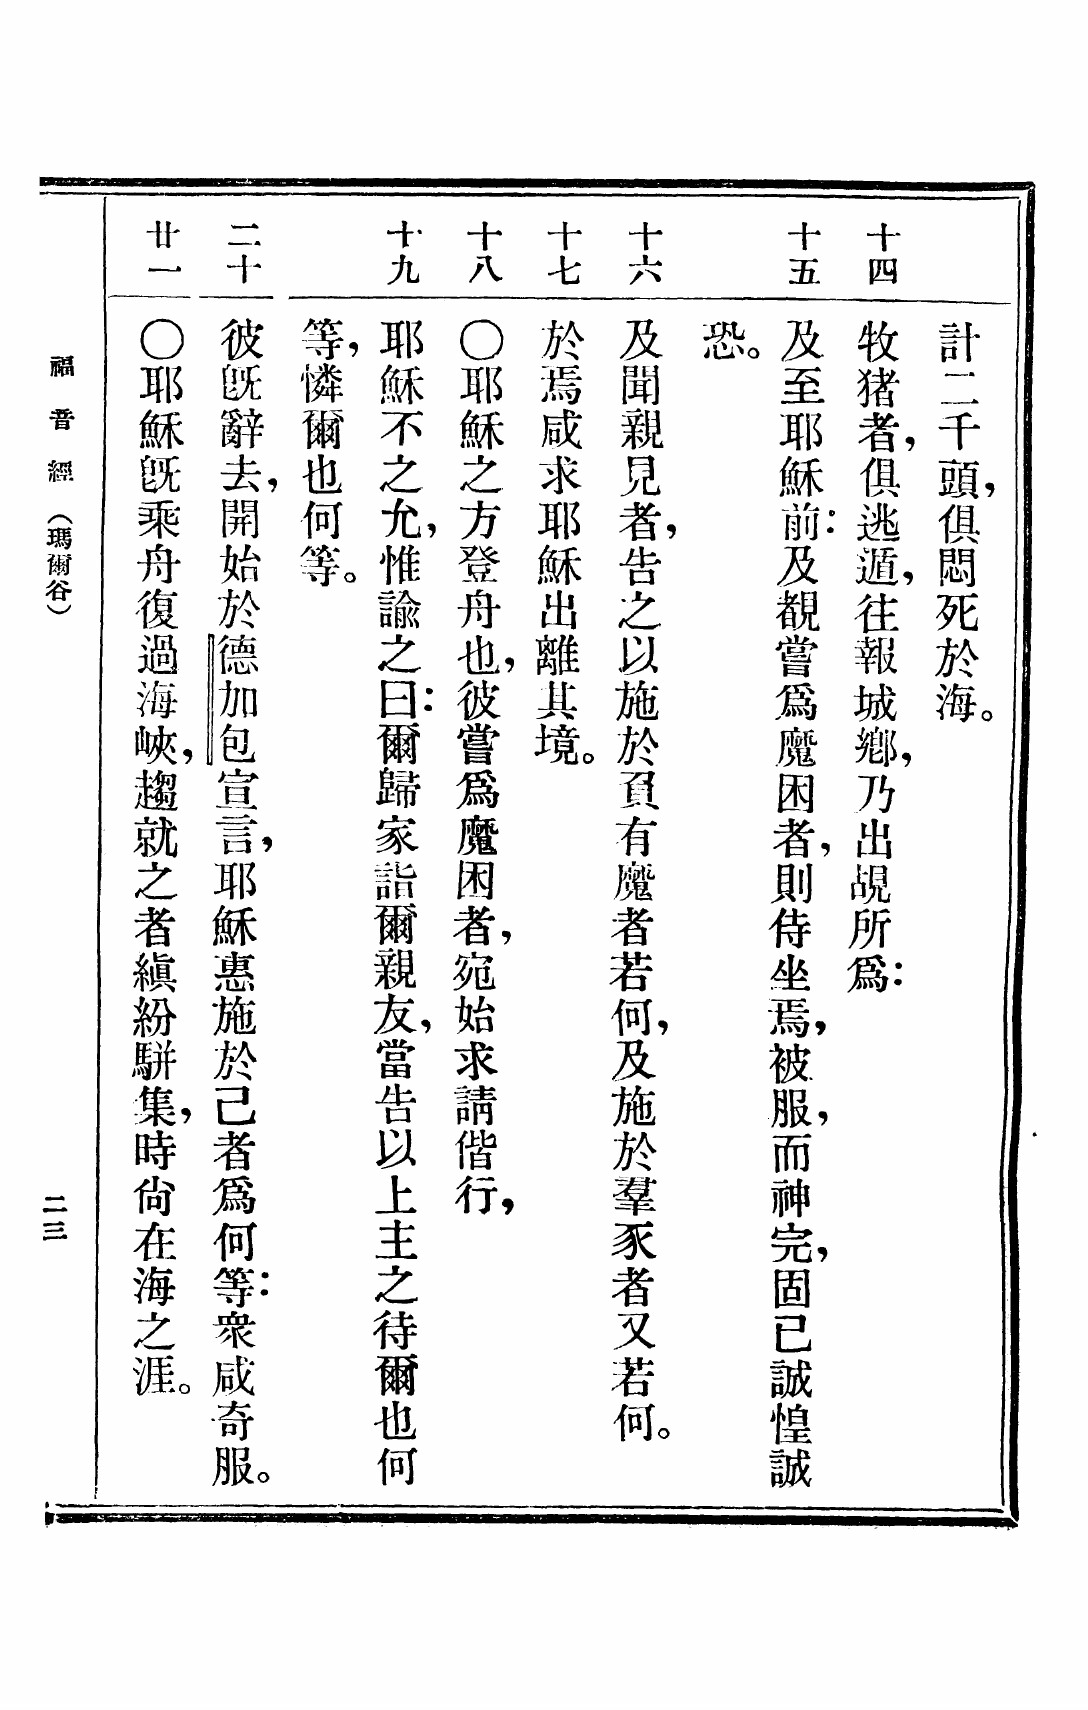 計二千頭，俱悶死於海。
十四
牧猪者，俱逃遁，往報城鄉，乃出覘所爲：
十五
及至耶穌前：及覩嘗爲魔困者，則侍坐焉，被服，而神完，固已誠惶誠
恐。
十六
及聞親見者，告之以施於負有魔者若何，及施於羣豕者又若何。
十七
於焉咸求耶穌出離其境。
十八
〇耶穌之方登舟也，彼嘗爲魔困者，宛始求請偕行，
十九
耶穌不之允，惟諭之曰：爾歸家詣爾親友，當告以上主之待爾也何
等，憐爾也何等。
二十
彼旣辭去，開始於德加包宣言，耶穌惠施於己者爲何等：衆咸奇服。
廿一
〇耶穌旣乘舟復過海峽，趨就之者縝紛駢集，時尙在海之涯。
福音經（瑪爾谷）
二三